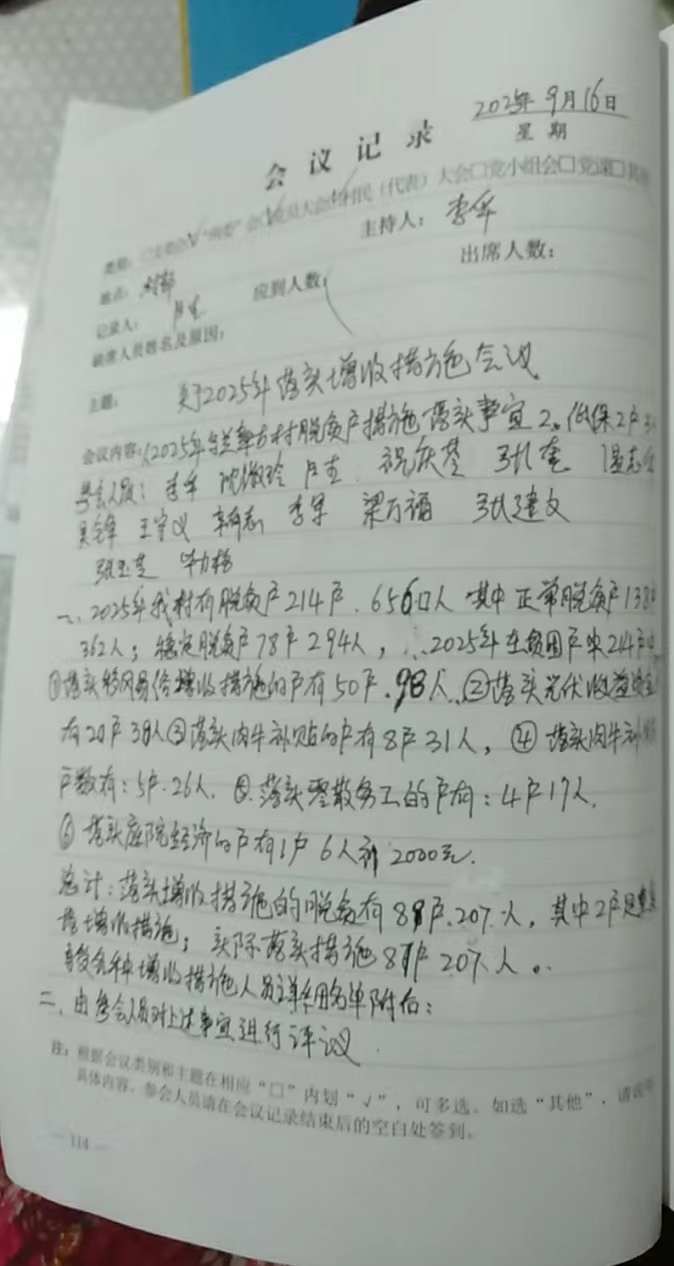 2025年9月16日
会议记录 星期
类别： "两委"会 党员大会 村民（代表）大会□党小组会□党课□其他
地点：村部 主持人：李军
记录人： 应到人数： 出席人数：
缺席人员姓名及原因：
主题：关于2025年落实增收措施会议
会议内容：1、2025年 村脱贫户措施落实事宜 2、低保2户3
参会人员：李军 沈 玲 张奎 温志
王守义 李军 梁万福 张建文
张玉芝
一、2025年我村有脱贫户214户.656口人 其中正常脱贫户138
362人；稳定脱贫户78户294人， 2025年在贫困户中214户中
①落实 增收措施的户有50户.98人、②落实光伏收益资金
有20户38人③落实肉牛补贴的户有8户31人，④落实肉牛补
户数有：5户.26人. ⑤.落实零散务工的户有：4户17人.
⑥落实庭院经济的户有1户6人补2000元.
总计：落实增收措施的脱贫有 户.207.人，其中2户是重
增收措施；实际落实措施 户207人。
享受各种增收措施人员详细名单附后：
二、由参会人员对上述事宜进行评议
注：根据会议类别和主题在相应"□"内划"√"，可多选。如选"其他"，请说明
具体内容。参会人员请在会议记录结束后的空白处签到。
— 114 —